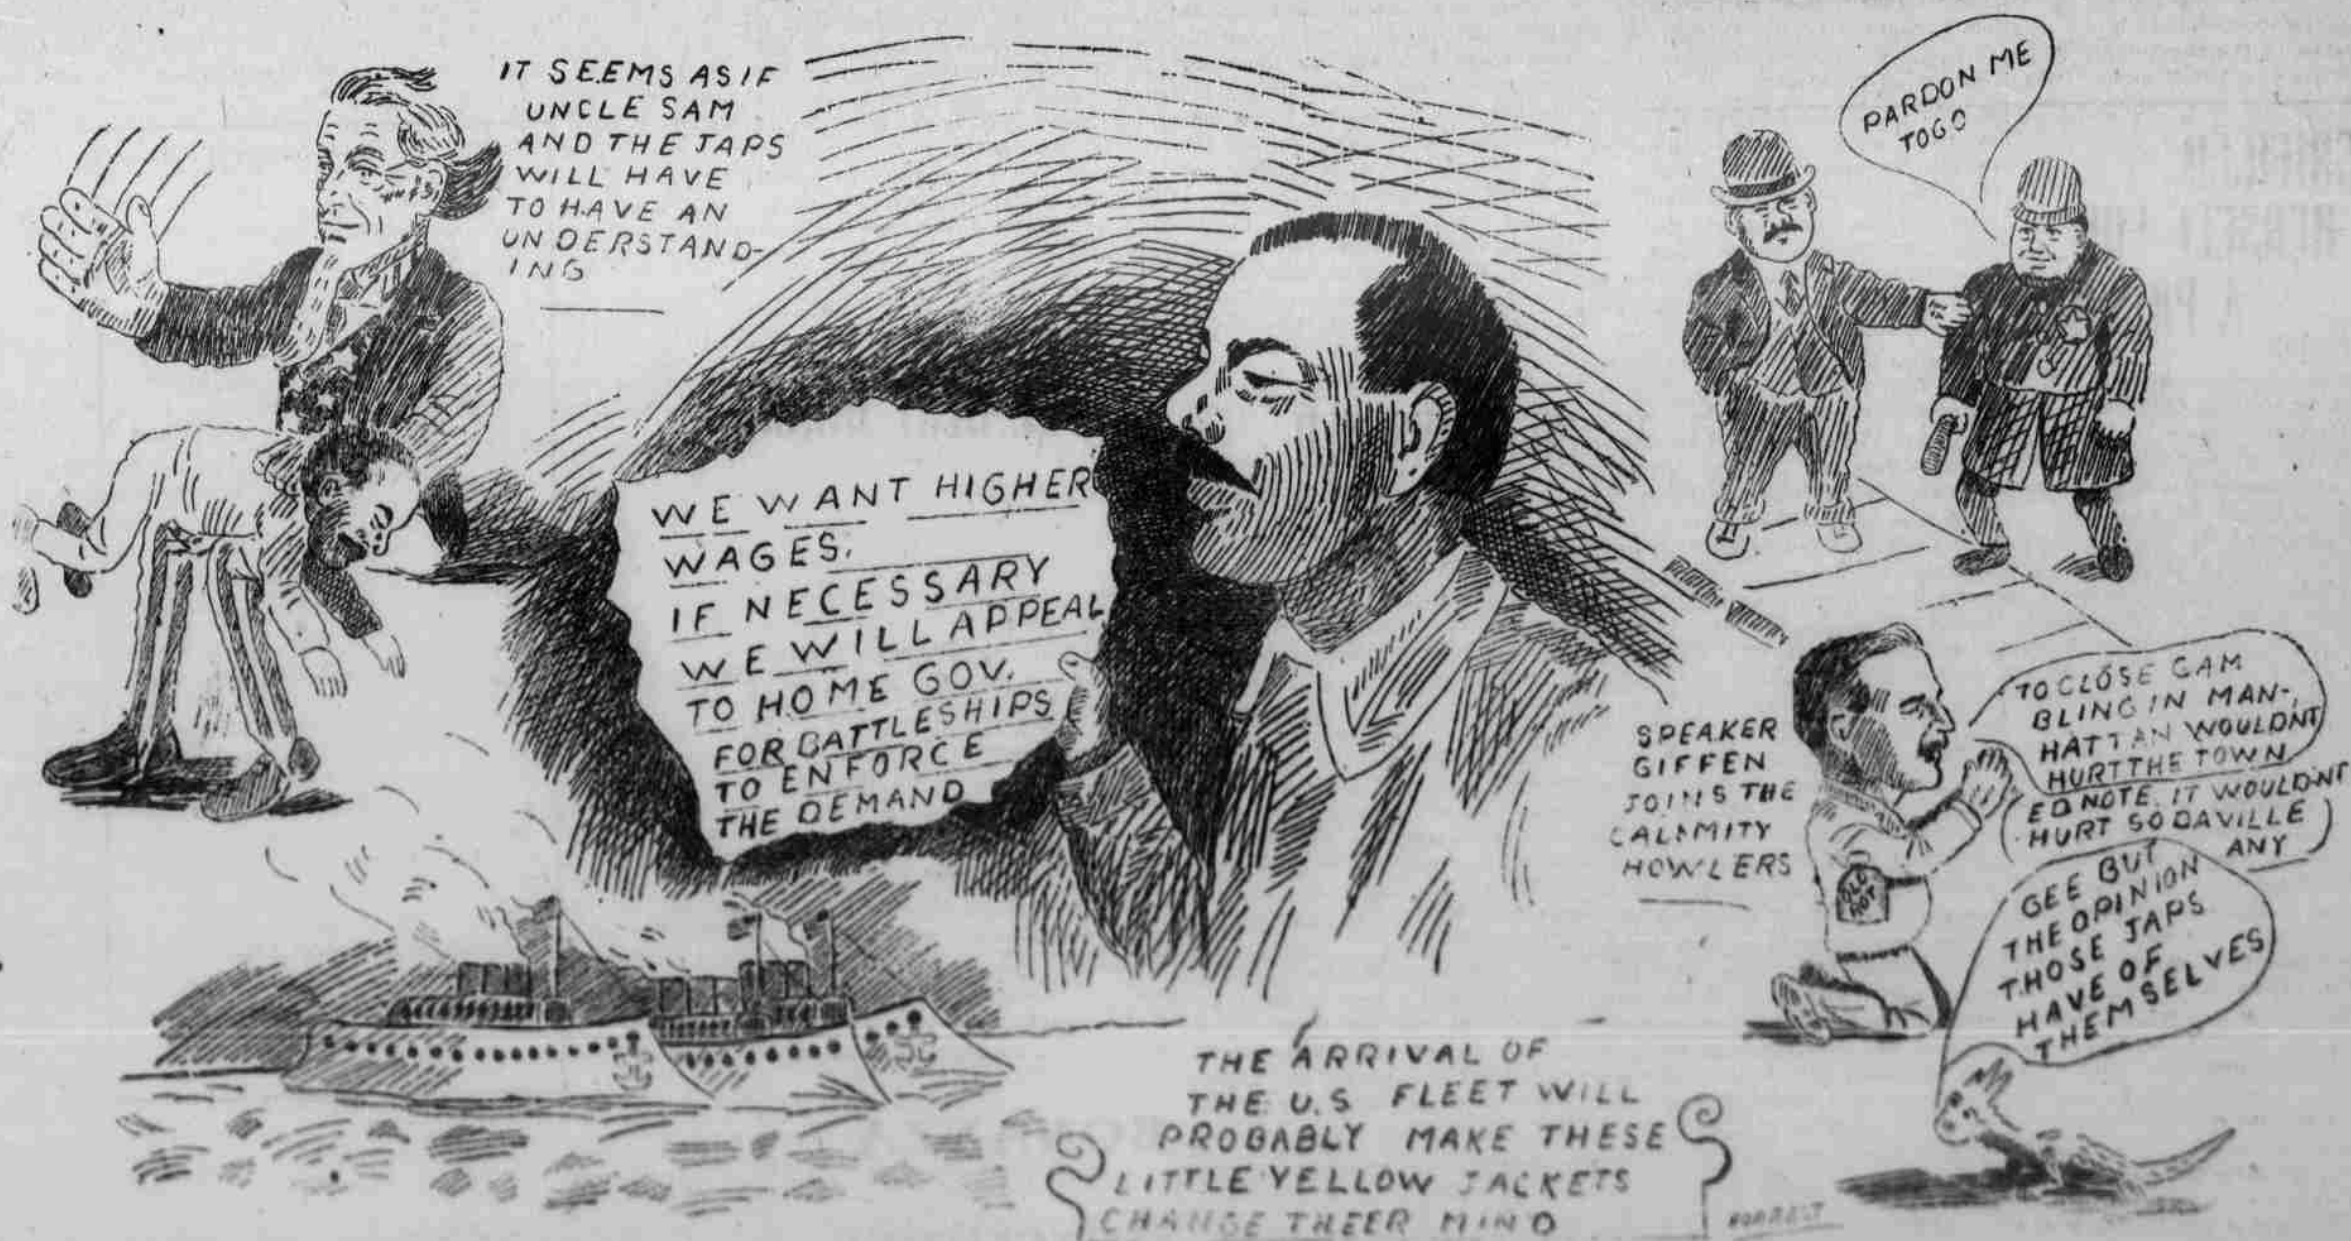 IT SEEMS AS IF
UNCLE SAM
AND THE JAPS
WILL HAVE
TO HAVE AN
UNDERSTAND-
ING
WE WANT HIGHER
WAGES.
IF NECESSARY
WE WILL APPEAL
TO HOME GOV.
FOR BATTLESHIPS
TO ENFORCE
THE DEMAND
PARDON ME
TOGO
SPEAKER
GIFFEN
JOINS THE
CALAMITY
HOWLERS
TO CLOSE GAM
BLING IN MAN-
HATTAN WOULDNT
HURT THE TOWN
ED NOTE. IT WOULDNT
HURT SODAVILLE
ANY
GEE BUT
THE OPINION
THOSE JAPS
HAVE OF
THEMSELVES
THE ARRIVAL OF
THE U.S FLEET WILL
PROBABLY MAKE THESE
LITTLE YELLOW JACKETS
CHANGE THEER MIND